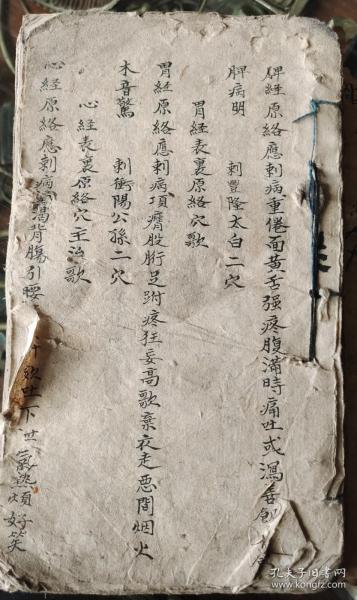 脾經原絡應刺病重倦面黃舌强疼腹滿時痛吐或瀉善
脾病明 刺豐隆太白二穴
胃經表裏原絡穴歌
胃經原絡應刺病項膺股胻足跗疼狂妄高歌棄衣走惡聞烟火
木音驚 刺衝陽公孫二穴
心經表裏原絡穴主治歌
心經原絡應刺病 背膓引腰 下 煩好笑
孔夫子旧书网